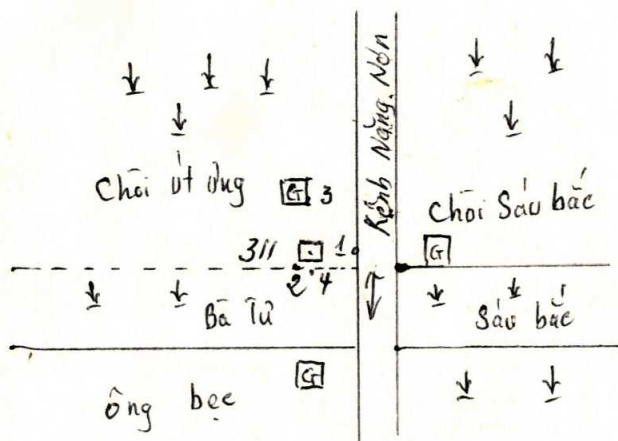 Kênh Năng Nón
Chòi Út Ửng
G 3
Chòi Sáu bắc
G
311
1
2 4
Bà Tư
Sáu bắc
G
ông bẹc